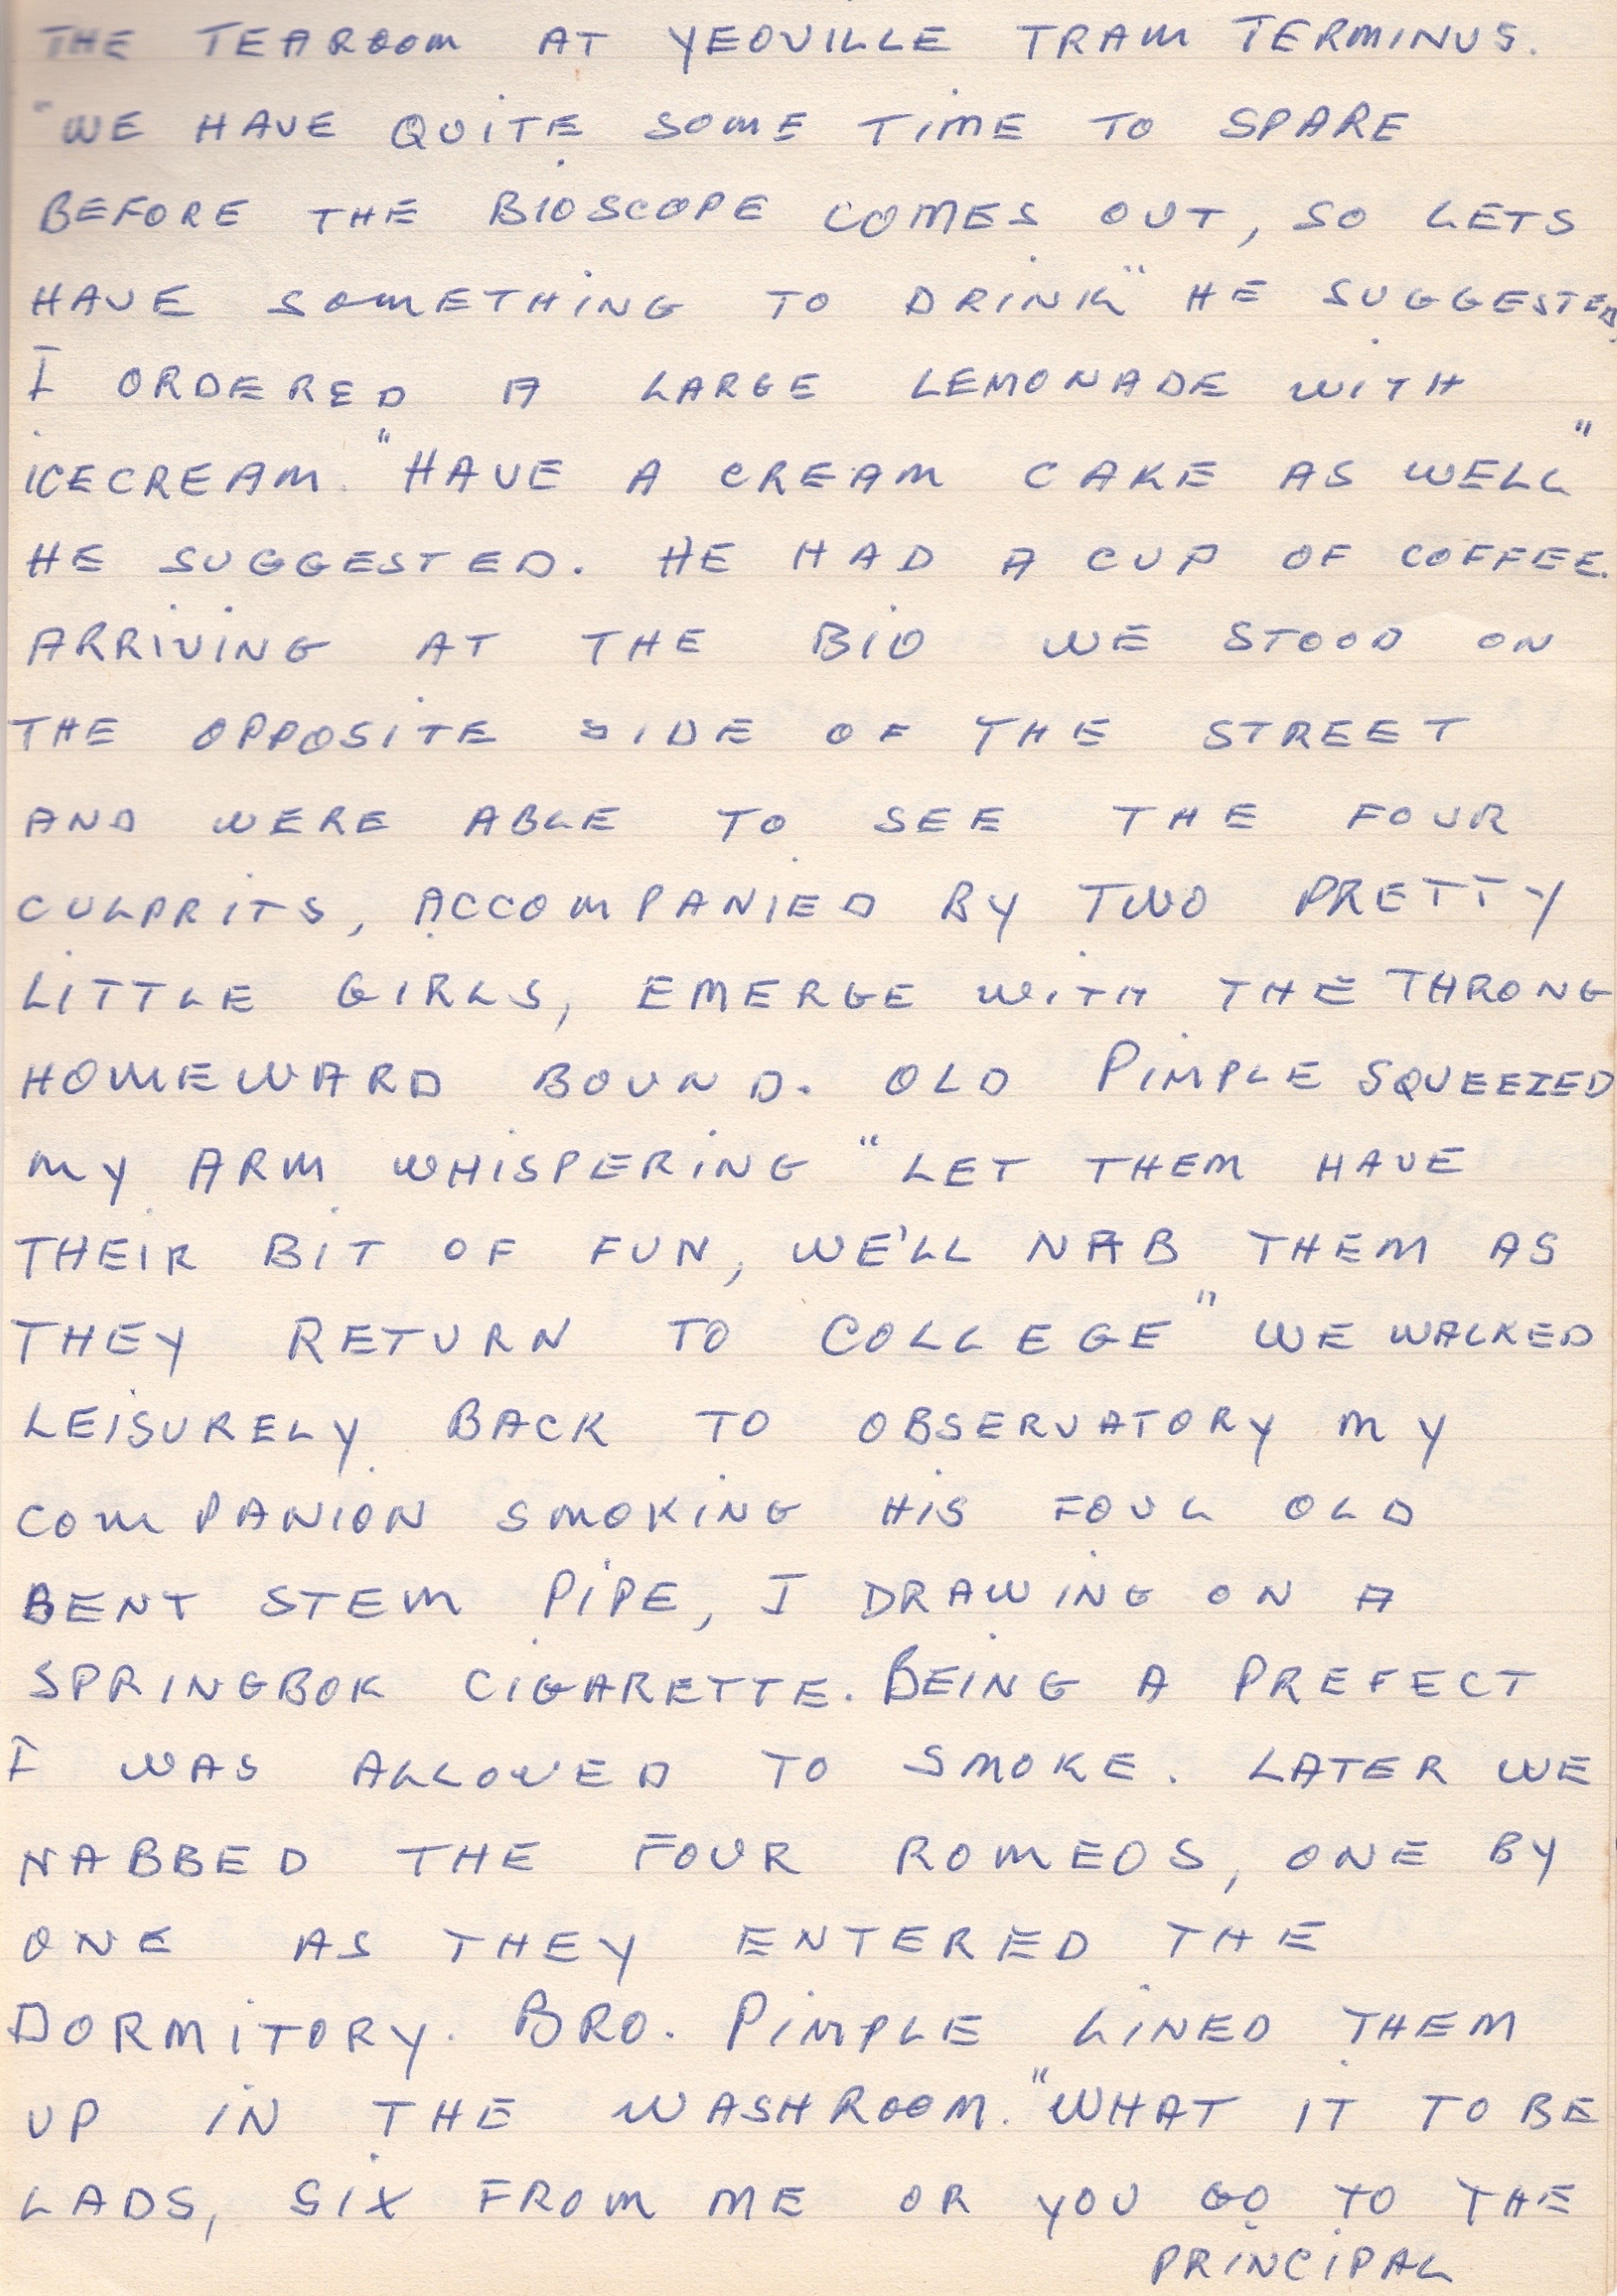 THE TEAROOM AT YEOVILLE TRAM TERMINUS.
"WE HAVE QUITE SOME TIME TO SPARE
BEFORE THE BIOSCOPE COMES OUT, SO LETS
HAVE SOMETHING TO DRINK" HE SUGGESTED.
I ORDERED A LARGE LEMONADE WITH
ICECREAM. "HAVE A CREAM CAKE AS WELL"
HE SUGGESTED. HE HAD A CUP OF COFFEE.
ARRIVING AT THE BIO WE STOOD ON
THE OPPOSITE SIDE OF THE STREET
AND WERE ABLE TO SEE THE FOUR
CULPRITS, ACCOMPANIED BY TWO PRETTY
LITTLE GIRLS, EMERGE WITH THE THRONG
HOMEWARD BOUND. OLD PIMPLE SQUEEZED
MY ARM WHISPERING "LET THEM HAVE
THEIR BIT OF FUN, WE'LL NAB THEM AS
THEY RETURN TO COLLEGE" WE WALKED
LEISURELY BACK TO OBSERVATORY MY
COMPANION SMOKING HIS FOUL OLD
BENT STEM PIPE, I DRAWING ON A
SPRINGBOK CIGARETTE. BEING A PREFECT
I WAS ALLOWED TO SMOKE. LATER WE
NABBED THE FOUR ROMEOS, ONE BY
ONE AS THEY ENTERED THE
DORMITORY. BRO. PIMPLE LINED THEM
UP IN THE WASHROOM. "WHAT IT TO BE
LADS, SIX FROM ME OR YOU GO TO THE
PRINCIPAL